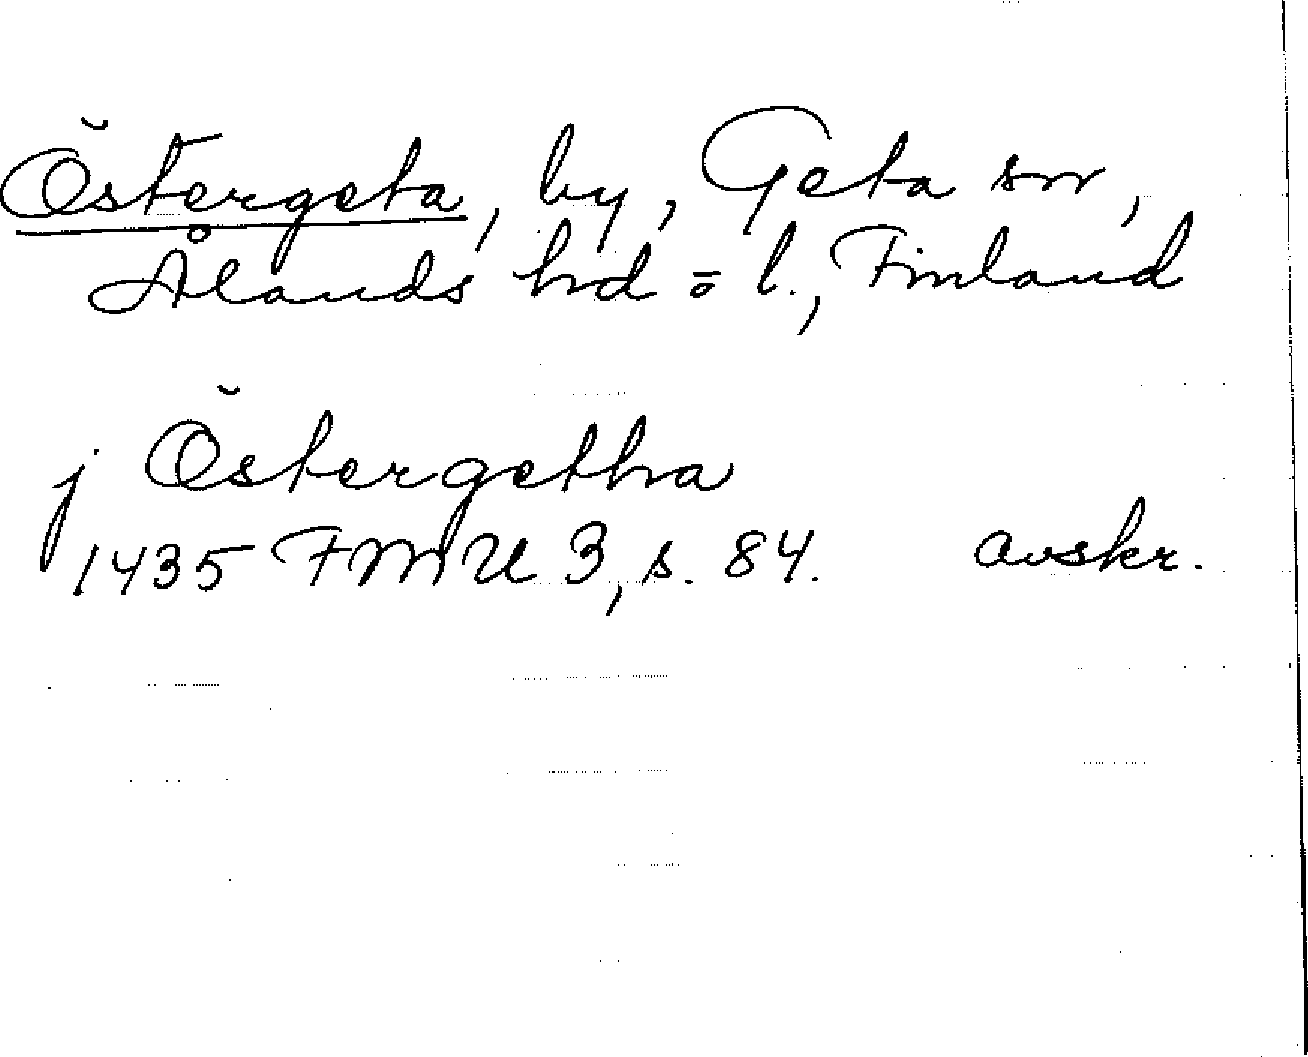 Östergeta, by, Geta sn,
Ålands hd o l., Finland
j Östergetha
1435 FMU 3, s. 84. avskr.